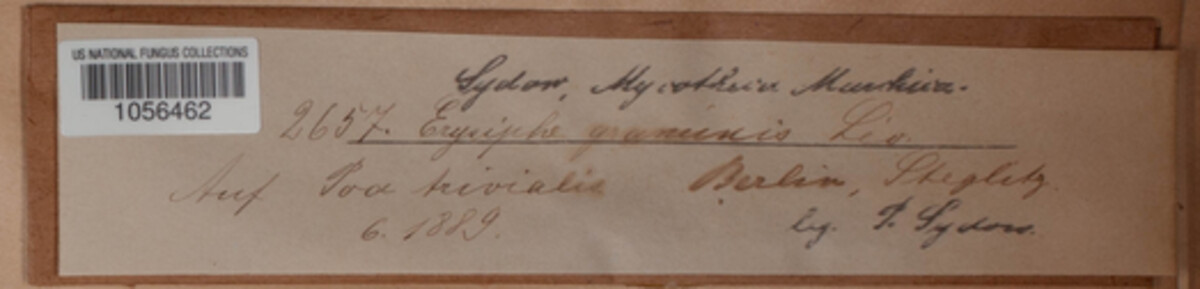 US NATIONAL FUNGUS COLLECTIONS
1056462
Sydow, Mycotheca Marchica.
2657. Erysiphe graminis Lév.
Auf Poa trivialis Berlin, Steglitz.
6. 1889. leg. P. Sydow.